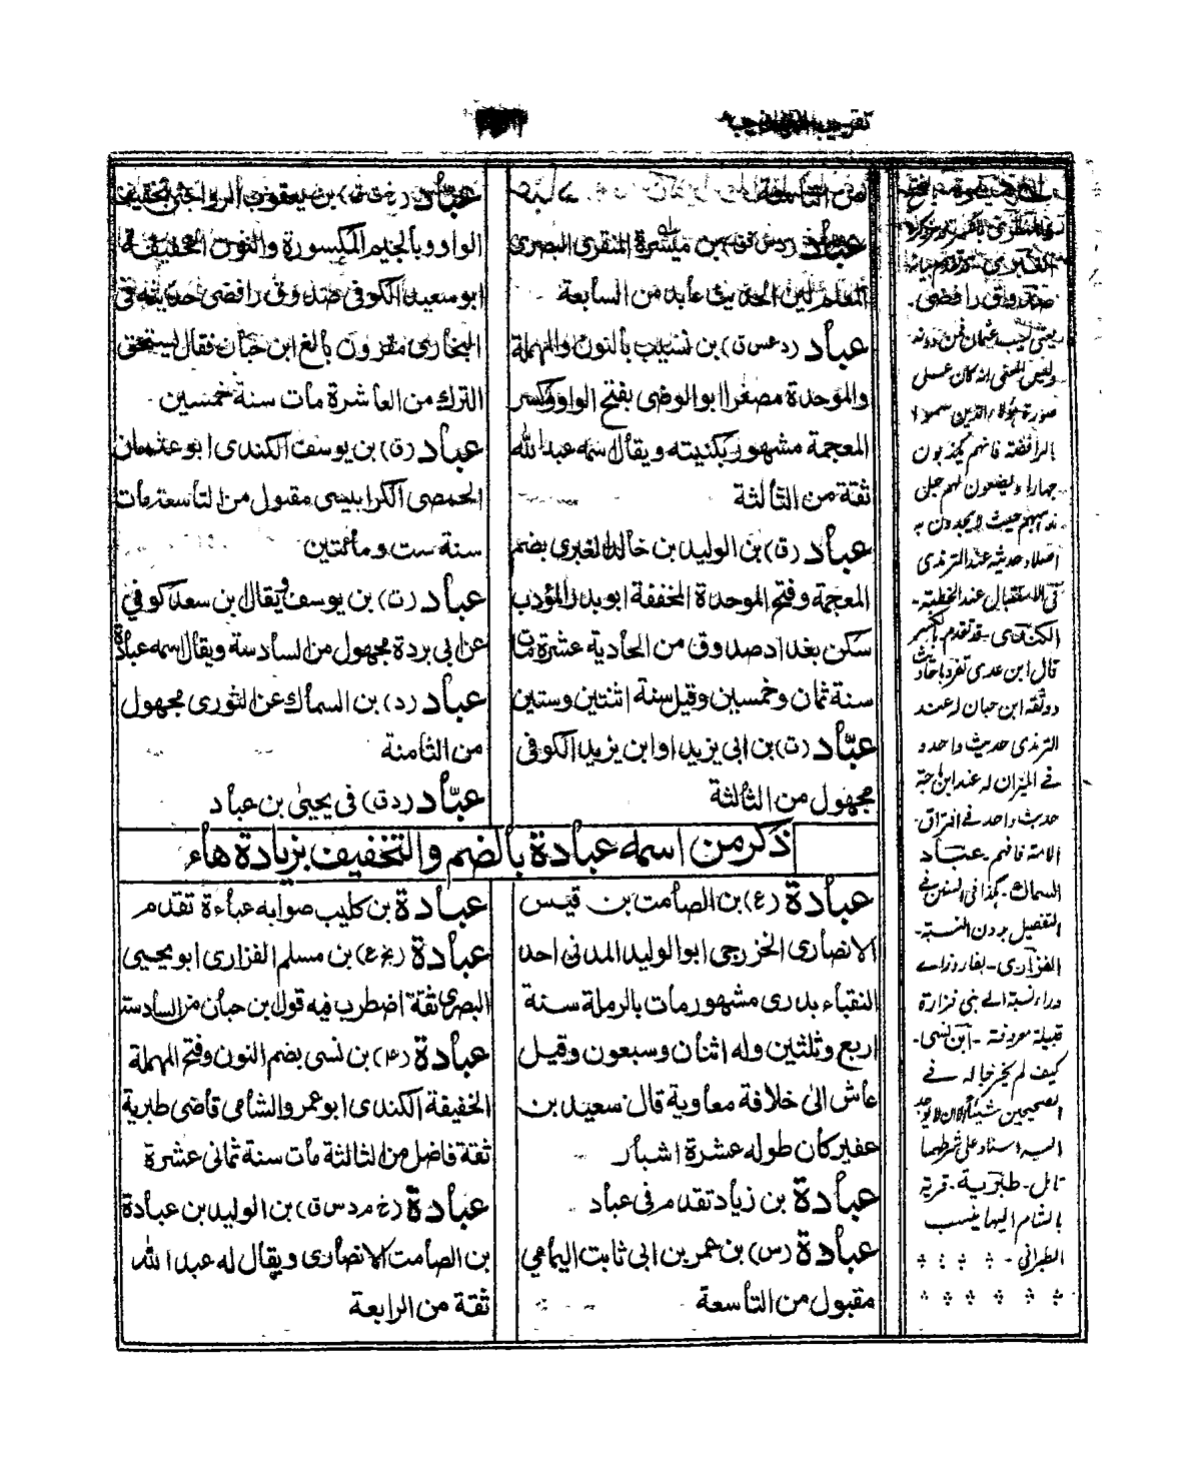 تقريب
من التاسعة
عباد بن ميسرة المنقرى البصرى
المعلم لين الحديث عابد من السابعة
عباد (د عس ق) بن نسيب بالنون والمهملة
والموحدة مصغرا ابو الوضى بفتح الواو وكسر
المعجمة مشهور بكنيته ويقال اسمه عبد الله
ثقة من الثالثة
عباد (ق) بن الوليد بن خالد الغبرى بضم
المعجمة وفتح الموحدة المخففة ابو بدر المؤدب
سكن بغداد صدوق من الحادية عشرة مات
سنة ثمان وخمسين وقيل سنة اثنتين وستين
عبّاد (ت) بن ابى يزيد او ابن يزيد الكوفى
مجهول من الثالثة
عباد بن يعقوب الرواجنى بتخفيف
الواو وبالجيم المكسورة والنون الخفيفة
ابو سعيد الكوفى صدوق رافضى حديثه فى
البخارى مقرون بالغ ابن حبان فقال يستحق
الترك من العاشرة مات سنة خمسين
عباد (ق) بن يوسف الكندى ابو عثمان
الحمصى الكرابيسى مقبول من التاسعة مات
سنة ست ومأتين
عباد (ت) بن يوسف ويقال بن سعد كوفي
عن ابى بردة مجهول من السادسة ويقال اسمه عبادة
عباد (د) بن السماك عن الثورى مجهول
من الثامنة
عبّاد (د ق) فى يحيىٰ بن عباد
ذكر من اسمه عبادة بالضم والتخفيف بزيادة هاء
عبادة (ع) بن الصامت بن قيس
الانصارى الخزرجى ابو الوليد المدنى احد
النقباء بدرى مشهور مات بالرملة سنة
اربع وثلثين وله اثنان وسبعون وقيل
عاش الى خلافة معاوية قال سعيد بن
عفير كان طوله عشرة اشبار
عبادة بن زياد تقدم فى عباد
عبادة (س) بن عمر بن ابى ثابت اليمامي
مقبول من التاسعة
عبادة بن كليب صوابه عباءة تقدم
عبادة (بخ ع) بن مسلم الفزارى ابو يحيى
البصرى ثقة اضطرب فيه قول بن حبان من السادسة
عبادة (عم) بن نسى بضم النون وفتح المهملة
الخفيفة الكندى ابو عمر والشامى قاضى طبرية
ثقة فاضل من الثالثة مات سنة ثمانى عشرة
عبادة (خ م د س ق) بن الوليد بن عبادة
بن الصامت الانصارى ويقال له عبد الله
ثقة من الرابعة
صدوق رافضى -
يعنى يسب عثمان فمن دونه
وليس المعنى انه كان على
صورة هؤلاء الذين سموا
بالرافضة فانهم يكذبون
جهارا ويضعون لهم
حيث لا يجدون به
اصلا وحديثه عند الترمذى
فى الاستقبال عند الخطبة -
الكندى - قد تقدم بالكسر
قال ابن عدى تفرد باحاديث
ووثقه ابن حبان له عند
الترمذى حديث واحد و
فے الميزان له عند ابن ماجة
حديث واحد فے افتراق
الامة فافهم - عباد
السماك - كذا فى السنن فے
التفصيل بدون النسبة -
الفزارى - بفا وزاے
وراء نسبة الى بنى فزارة
قبيلة معروفة - ابن نسى -
كيف لم يخرجا له فے
الصحيحين شيئا لان لا يوجد
اليه اسناد على شرطهما
تامل - طبرية - قرية
بالشام اليها ينسب
الطبرانى -